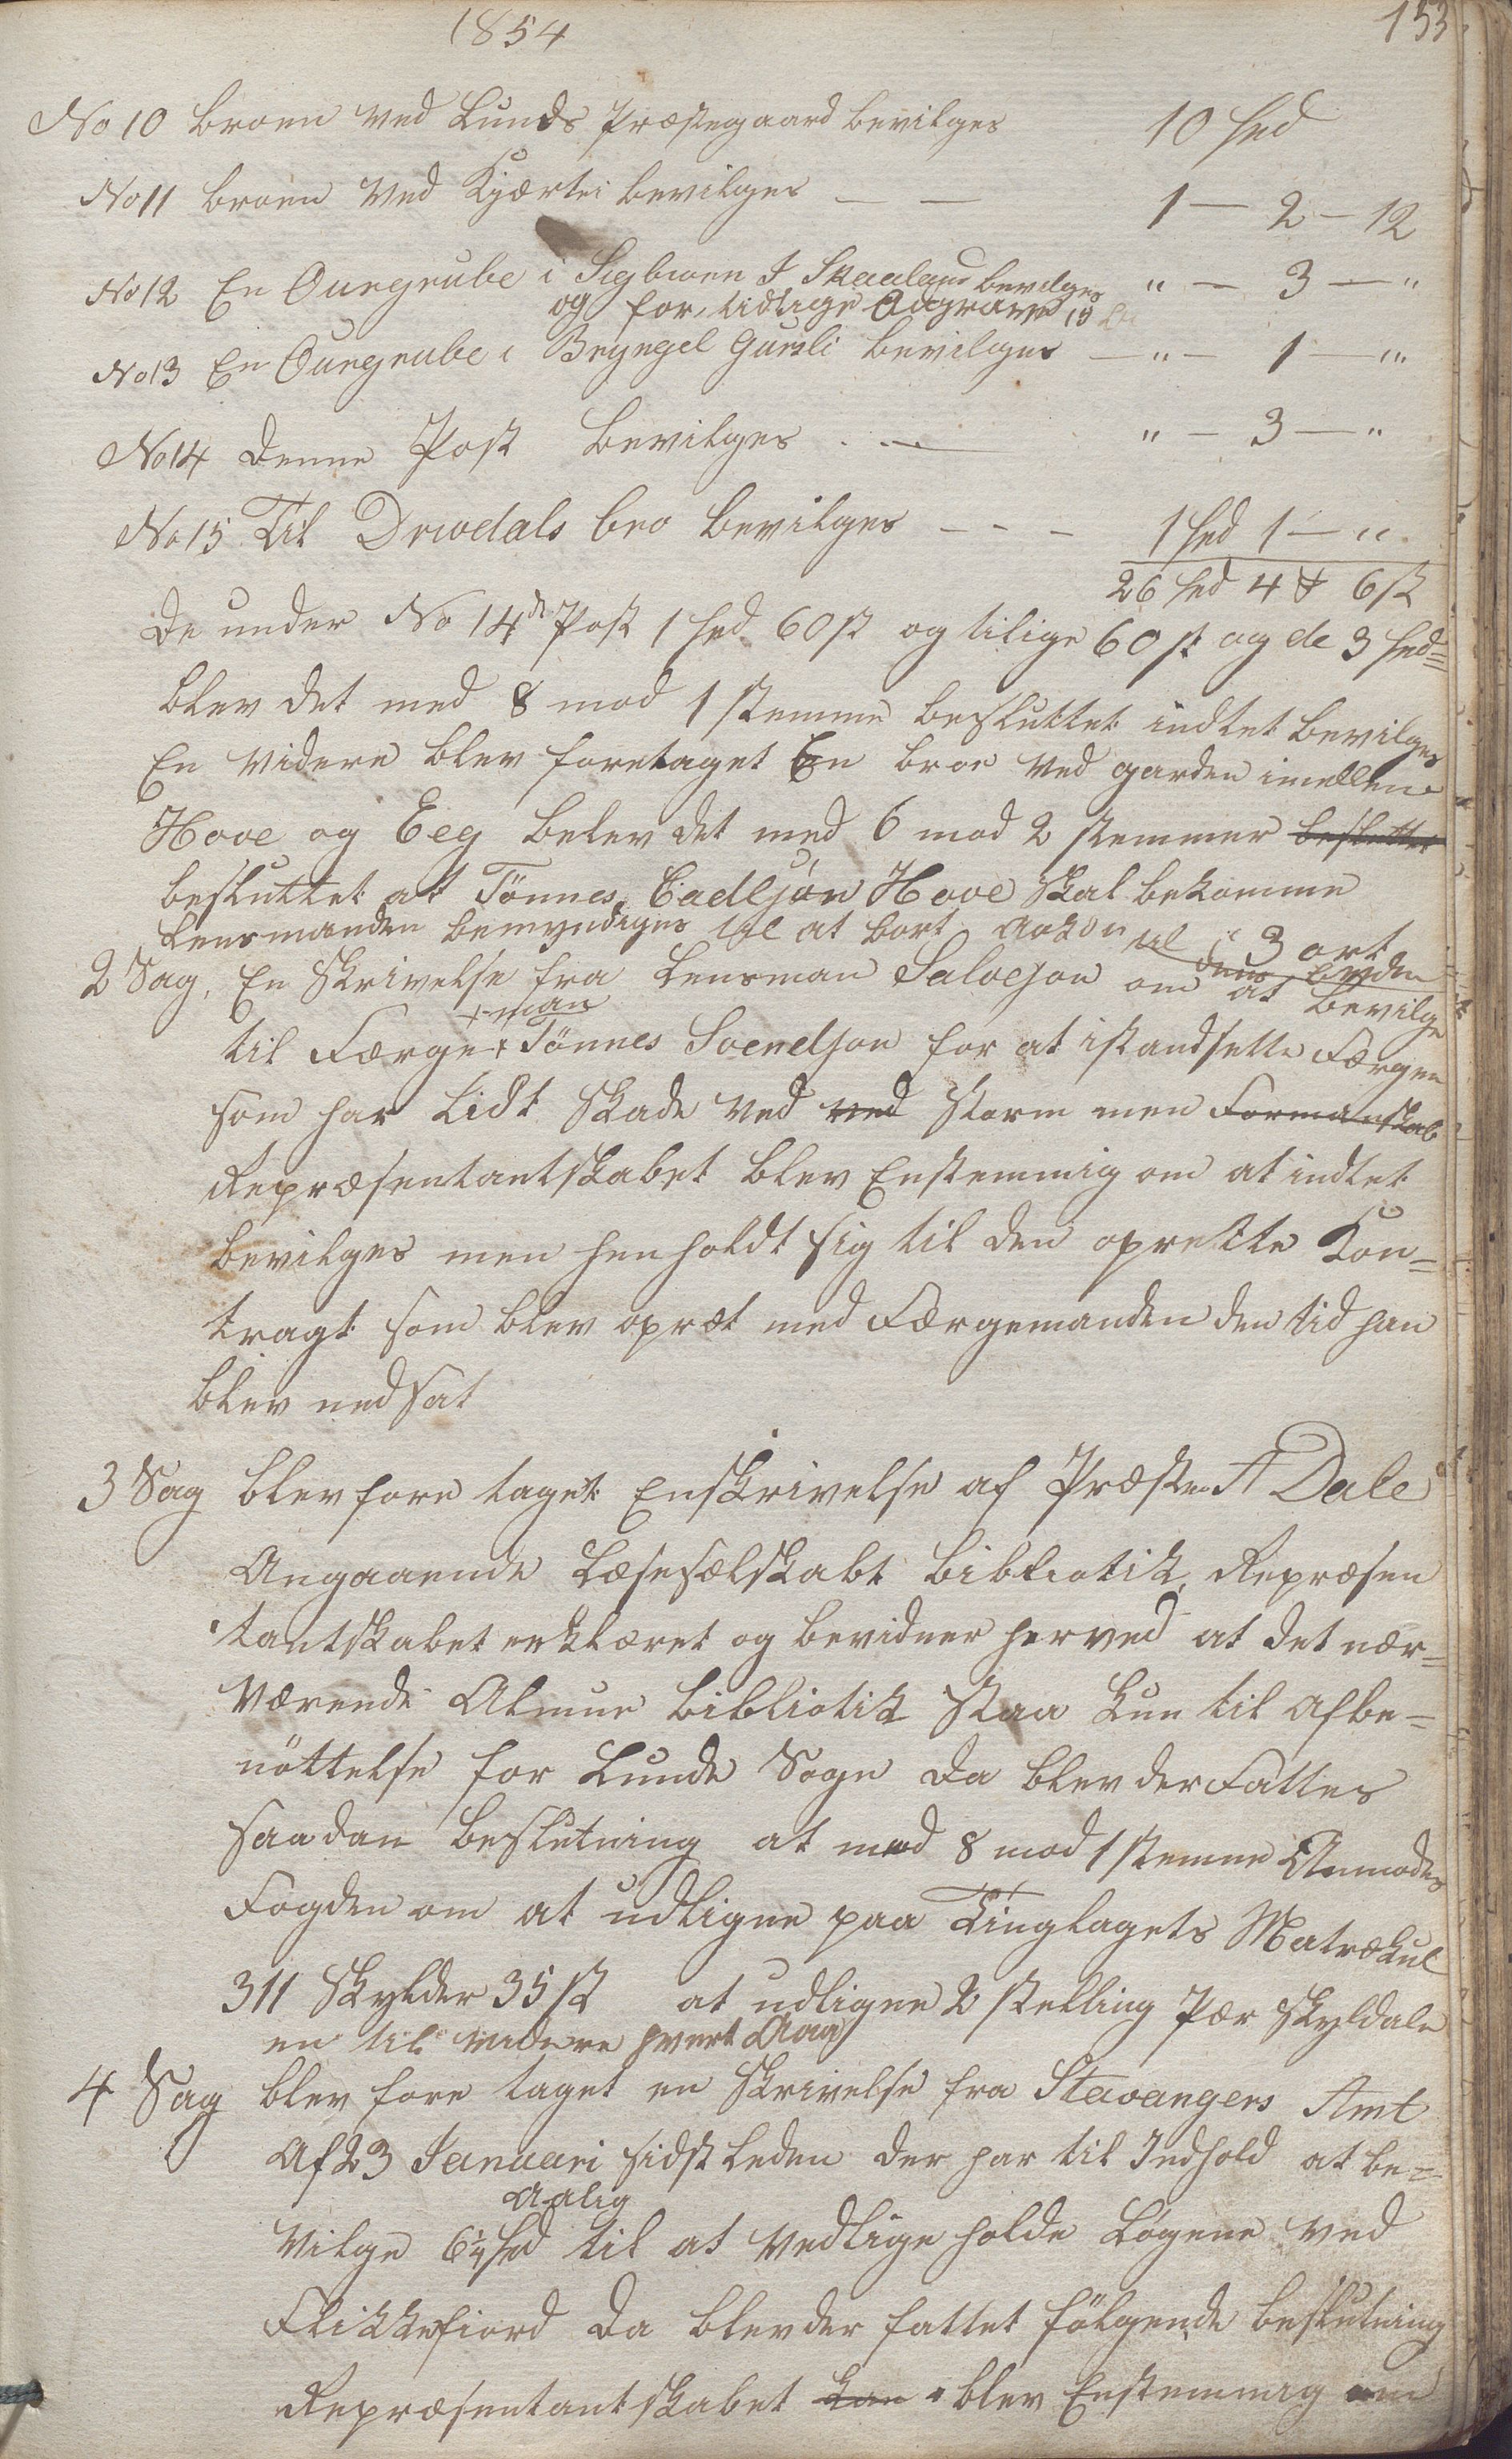 1854
153
No 10 broen ved Lunds Præstegaard bevilges 10 Spd
No 11 broen ved Kjærlei bevilges — — 1 — 2 — 12
No 12 En Ouregrube i Sigbroen I Skaaland bevilges " — 3 — "
og for, tidlige
No 13 En Ouregrube i Gursli bevilges — " — 1 — "
No 14 denne Post bevilges . — " — 3 — "
No 15 Til Drivdals bro bevilges — - — 1 Spd 1 — "
26 Spd 4 6 sk
De under No 14de Post 1 Spd 60 sk og tilige 60 sk og de 3 Spd=
blev det med 8 mod 1 stemme besluttet indtet bevilges
En videre blev foretaget En broe ved garden imellem
Hove og Eeg belev det med 6 mod 2 stemmer besluttet
besluttet at Tönnes Hove skal bekomme
3 ort
Lensmanden bemyndiges til at bort til
2 Sag, En Skrivelse fra Lensman Salvesen om at bevilge
man
til Færge+ Tönnes Svendson for at istandsette Færgen
som har Lidt Skade ved ved storm men Formanskab
Repræsentantskabet blev Enstemmig om at indtet
bevilges men henholdt sig til den oprette Kon=
tragt som blev opræt med Færgemanden den tid han
blev nedsat
3 Sag blev fore taget Enskrivelse af Præsten A Dale
Angaaende Læseselskabt bibliotik, Repræsen
tantskabet erklæret og bevidner herved at det nær=
værende Almue bibliotik staa kun til afbe=
nöttelse for Lunde Sogn da blev der Fattes
saadan beslutning at med 8 mod 1 stemme Anmodes
Fogden om at udligne paa Tinglagets Matrækul
311 Skylder 35 sk at udligne 2 skelling Pær Skyldale
en til videre hvert Aaar
4 Sag blev fore taget en Skrivelse fra Stavangers Amt
Af 23 Januari sidstleden der har til Indhold at be=
Aalig
vilge 6½ Spd til at vedlige holde Løgene ved
Flikkefiord da blev der fattet fölgende beslutning
Repræsentantskabet kan blev Enstemmig om